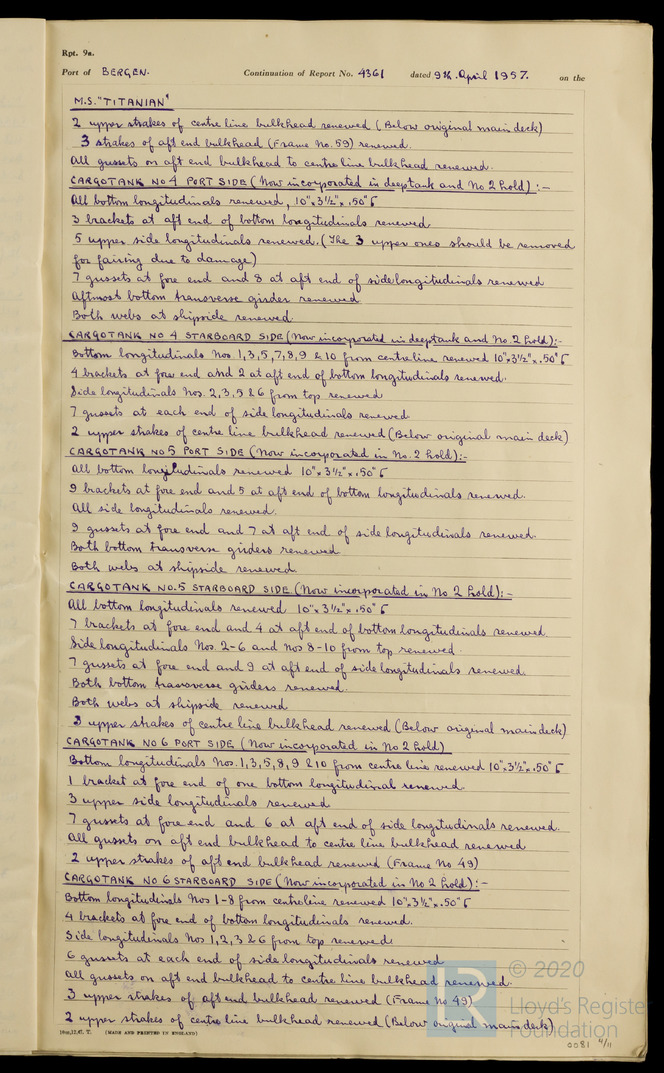 Rpt. 9a.
Port of BERGEN. Continuation of Report No. 4361 dated 9th. April 1957. on the
M.S. "TITANIAN"
2 upper strakes of centre line bulkhead renewed (Below original main deck)
3 strakes of aft end bulkhead (Frame No. 59) renewed.
All gussets on aft end bulkhead to centre line bulkhead renewed.
CARGOTANK NO 4 PORT SIDE (Now incorporated in deeptank and No 2 hold) :-
All bottom longitudinals renewed, 10"x3½"x.50" [
3 brackets at aft end of bottom longitudinals renewed.
5 upper side longitudinals renewed. (The 3 upper ones should be removed
for fairing due to damage)
7 gussets at fore end and 8 at aft end of side longitudinals renewed
Aftmost bottom transverse girder renewed
Both webs at shipside renewed.
CARGOTANK NO 4 STARBOARD SIDE (Now incorporated in deeptank and No. 2 hold):-
Bottom longitudinals Nos 1,3,5,7,8,9 & 10 from centreline renewed 10"x3½"x.50" [
4 brackets at fore end and 2 at aft end of bottom longitudinals renewed.
Side longitudinals Nos. 2,3,5 & 6 from top renewed
7 gussets at each end of side longitudinals renewed.
2 upper strakes of centre line bulkhead renewed (Below original main deck)
CARGOTANK NO 5 PORT SIDE (Now incorporated in No. 2 hold):-
All bottom longitudinals renewed 10"x3½"x.50" [
9 brackets at fore end and 5 at aft end of bottom longitudinals renewed.
All side longitudinals renewed.
9 gussets at fore end and 7 at aft end of side longitudinals renewed.
Both bottom transverse girders renewed
Both webs at shipside renewed.
CARGOTANK NO.5 STARBOARD SIDE (Now incorporated in No 2 hold):-
All bottom longitudinals renewed 10"x3½"x.50" [
7 brackets at fore end and 4 at aft end of bottom longitudinals renewed.
Side longitudinals Nos 2-6 and Nos 8-10 from top renewed.
7 gussets at fore end and 9 at aft end of side longitudinals renewed.
Both bottom transverse girders renewed.
Both webs at shipside renewed
3 upper strakes of centre line bulkhead renewed (Below original main deck)
CARGOTANK NO 6 PORT SIDE (Now incorporated in No 2 hold)
Bottom longitudinals Nos. 1,3,5,8,9 & 10 from centre line renewed 10"x3½"x.50" [
1 bracket at fore end of one bottom longitudinal renewed.
3 upper side longitudinals renewed
7 gussets at fore end and 6 at aft end of side longitudinals renewed.
All gussets on aft end bulkhead to centre line bulkhead renewed
2 upper strakes of aft end bulkhead renewed (Frame No 49)
CARGOTANK NO 6 STARBOARD SIDE (Now incorporated in No 2 hold):-
Bottom longitudinals Nos 1-8 from centreline renewed 10"x3½"x.50" [
4 brackets at fore end of bottom longitudinals renewed.
Side longitudinals Nos 1,2,3 & 6 from top renewed.
6 gussets at each end of side longitudinals renewed
All gussets on aft end bulkhead to centre line bulkhead renewed.
3 upper strakes of aft end bulkhead renewed (Frame No 49)
2 upper strakes of centre line bulkhead renewed (Below original main deck)
(MADE AND PRINTED IN ENGLAND)
0081 4/11
LR
© 2020
Lloyd's Register
Foundation